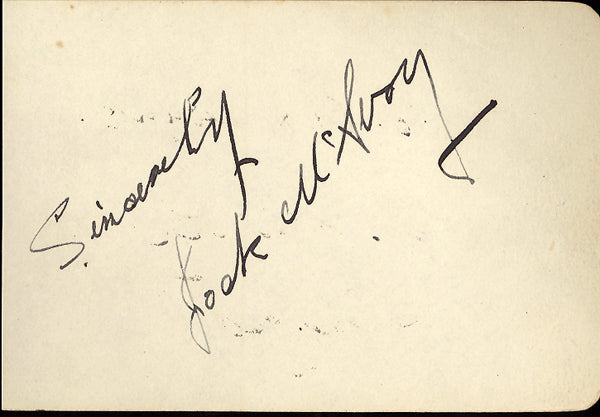 Sincerely
Jock McAvoy